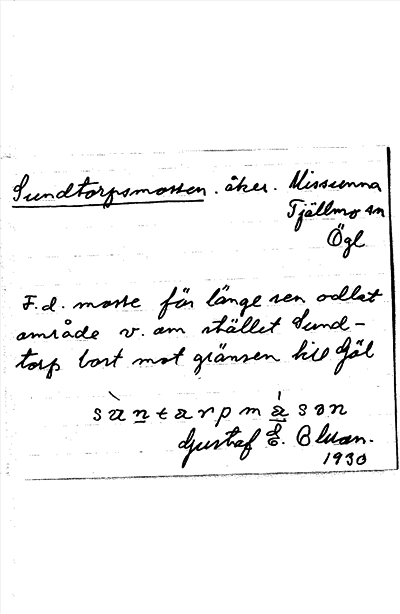 Sundtorpsmossen. åker. Missunna
Tjällmo sn
Ögl
F.d. mosse för länge sen odlat
område v. om stället Sund-
torp bort mot gränsen till Gäl
Gustaf E.
1930